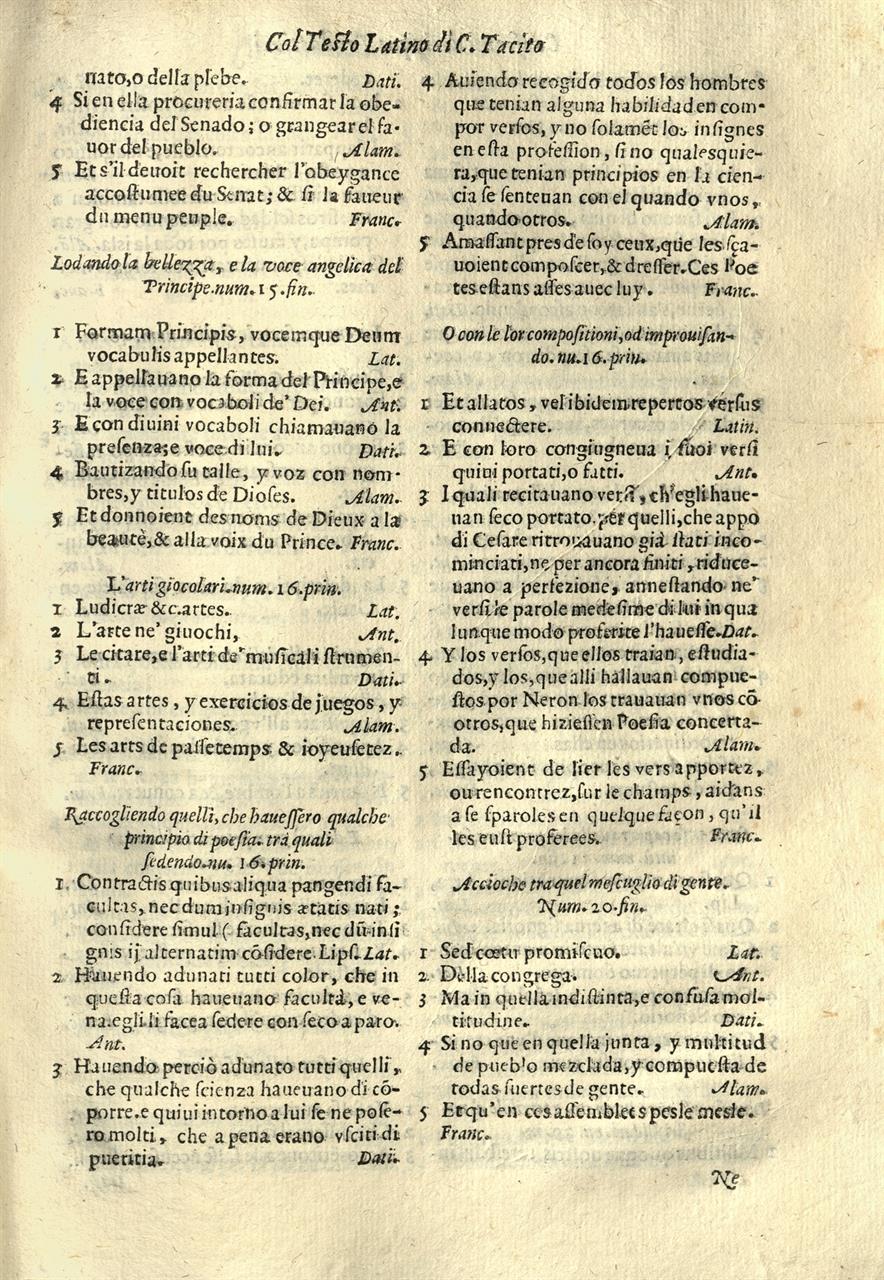 Col Testo Latino di C. Tacito
nato, o della plebe. Dati.
4 Si en ella procureria confirmar la obe-
diencia del Senado; o grangear el fa-
uor del pueblo. Alam.
5 Et s'il deuoit rechercher l'obeygance
accostumee du Senat; & si la faueur
du menu peuple. Franc.
Lodando la bellezza, e la voce angelica del
Principe. num. 15. fin.
1 Formam Principis, vocemque Deum
vocabulis appellantes. Lat.
2 E appellauano la forma del Principe, e
la voce con vocaboli de' Dei. Ant.
3 E con diuini vocaboli chiamauano la
presenza; e voce di lui. Dati.
4 Bautizando su talle, y voz con nom-
bres, y titulos de Dioses. Alam.
5 Et donnoient des noms de Dieux a la
beautè, & alla voix du Prince. Franc.
L'arti giocolari. num. 16. prin.
1 Ludicræ &c. artes. Lat.
2 L'arte ne' giuochi, Ant.
3 Le citare, e l'arti de' musicali strumen-
ti. Dati.
4 Estas artes, y exercicios de juegos, y
representaciones. Alam.
5 Les arts de passetemps & ioyeusetez.
Franc.
Raccogliendo quelli, che hauessero qualche
principio di poesia. trà quali
sedendo. nu. 16. prin.
1 Contractis quibus aliqua pangendi fa-
cultas, nec dum insignis ætatis nati;
considere simul ( facultas, nec dū insi
gnis ij alternatim cōsidere. Lips. Lat.
2 Hauendo adunati tutti color, che in
questa cosa haueuano facultà, e ve-
na. egli li facea sedere con seco a paro.
Ant.
3 Hauendo perciò adunato tutti quelli,
che qualche scienza haueuano di cō-
porre. e quiui intorno a lui se ne pose-
ro molti, che a pena erano vsciti di
pueritia. Dati.
4 Auiendo recogido todos los hombres
que tenian alguna habilidad en com-
por versos, y no solamēt los insignes
en esta profession, si no qualesquie-
ra, que tenian principios en la cien-
cia se senteuan con el quando vnos,
quando otros. Alam.
5 Amassant pres de soy ceux, que les sça-
uoient composcer, & dresser. Ces Poe
tes estans asses auec luy. Franc.
O con le lor compositioni, od improuisan-
do. nu. 16. prin.
1 Et allatos, vel ibidem repertos versus
connectere. Latin.
2 E con loro congiugneua i suoi versi
quiui portati, o fatti. Ant.
3 I quali recitauano versi, ch'egli haue-
uan seco portato. per quelli, che appo
di Cesare ritrouauano già stati inco-
minciati, ne per ancora finiti, riduce-
uano a perfezione, annestando ne'
versi le parole medesime di lui in qua
lunque modo proferite l'hauesse. Dat.
4 Y los versos, que ellos traian, estudia-
dos, y los, que alli hallauan compue-
stos por Neron los trauauan vnos cō
otros, que hiziessen Poesia concerta-
da. Alam.
5 Essayoient de lier les vers apportez,
ou rencontrez, sur le champs, aidans
a se sparoles en quelque façon, qu'il
les eust proferees. Franc.
Accioche tra quel mescuglio di gente.
Num. 20. fin.
1 Sed cœtu promiscuo. Lat.
2 Della congrega. Ant.
3 Ma in quella indistinta, e confusa mol-
titudine. Dati.
4 Si no que en quella junta, y multitud
de pueblo mezclada, y compuesta de
todas suertes de gente. Alam.
5 Et qu'en ces assemblees pesle mesle.
Franc.
Ne